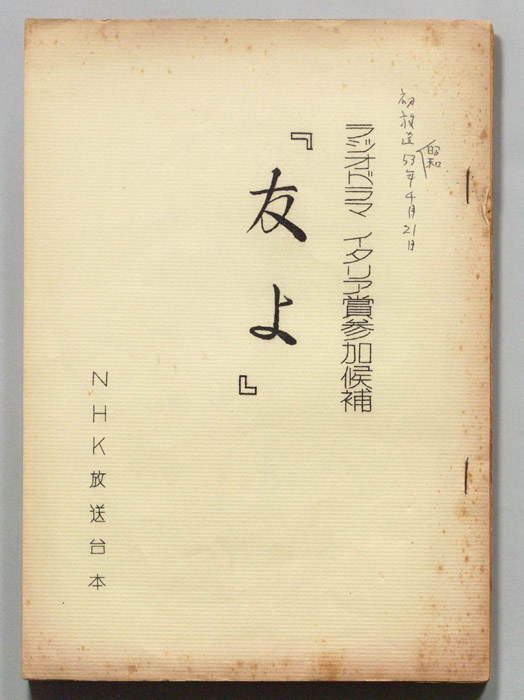 初放送 昭和53年4月21日
ラジオドラマ イタリア賞参加候補
『友よ』
NHK放送台本